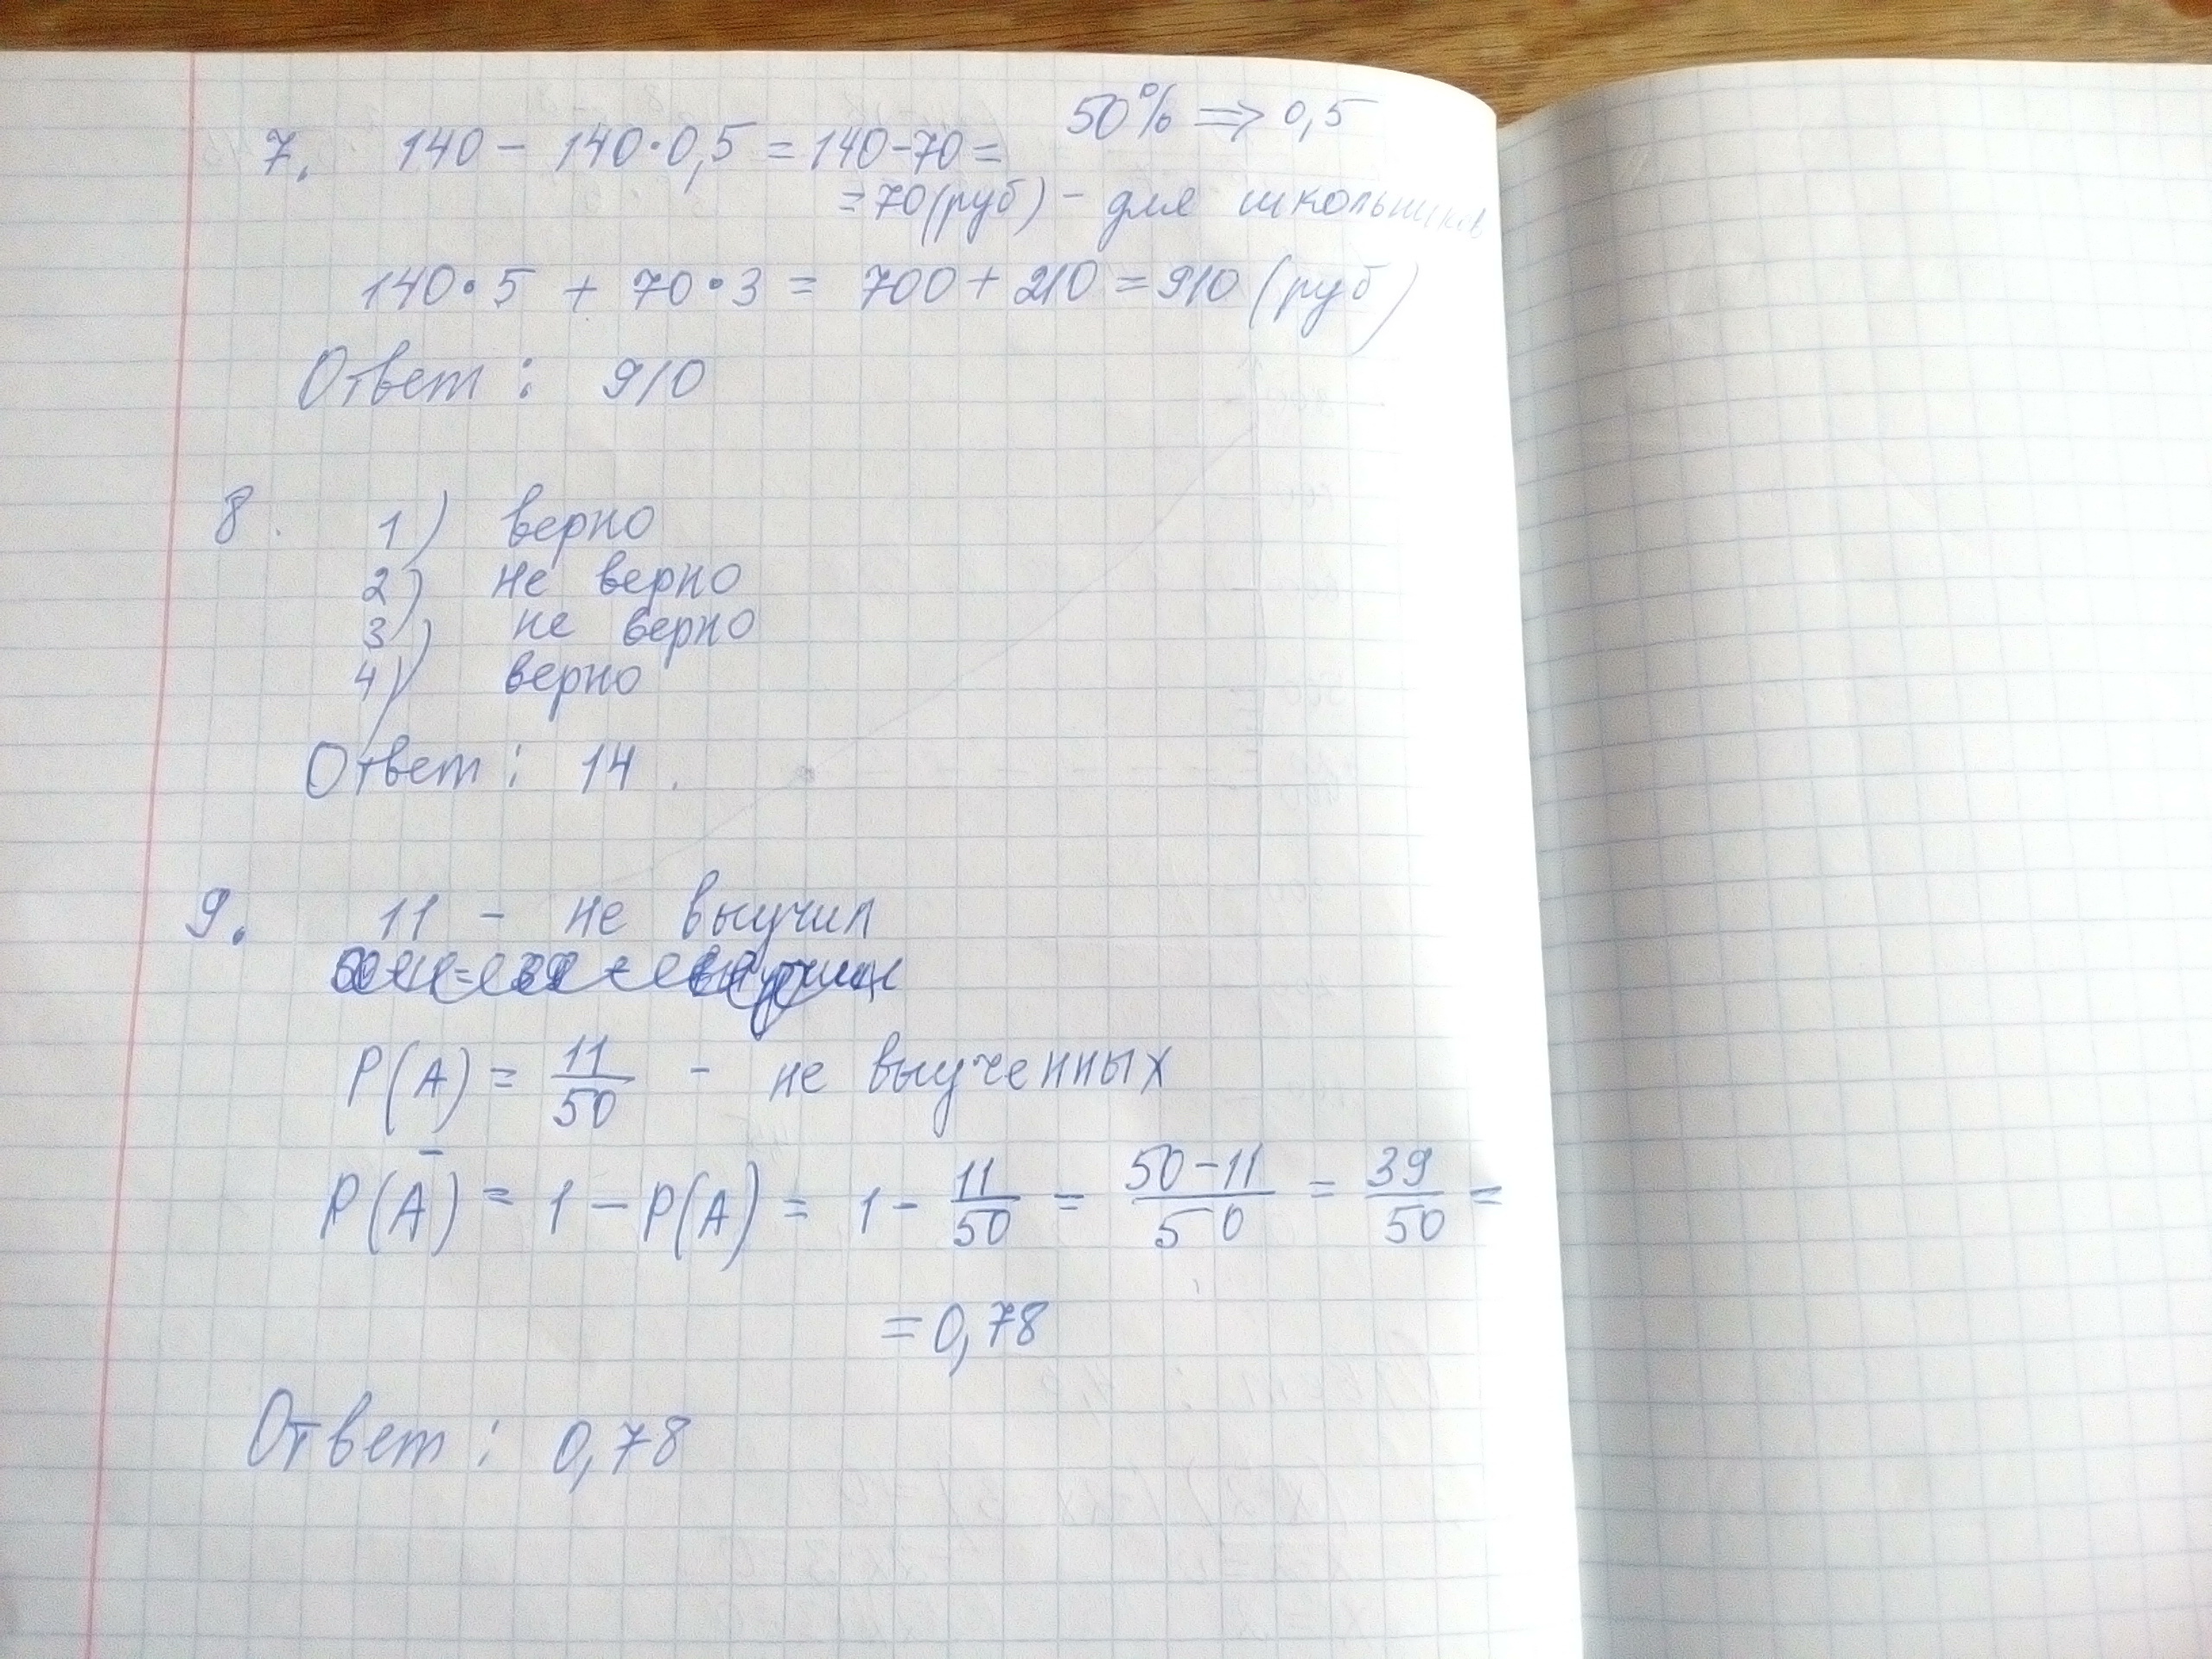 50% ⇒ 0,5
7. 140 - 140·0,5 = 140-70 =
= 70 (руб) - для школьников
140·5 + 70·3 = 700 + 210 = 910 (руб)
Ответ: 910
8. 1) верно
2) не верно
3) не верно
4) верно
Ответ: 14.
9. 11 - не выучил
P(A) = 11/50 - не выученных
P(Ā) = 1 - P(A) = 1 - 11/50 = 50-11/50 = 39/50 =
= 0,78
Ответ: 0,78